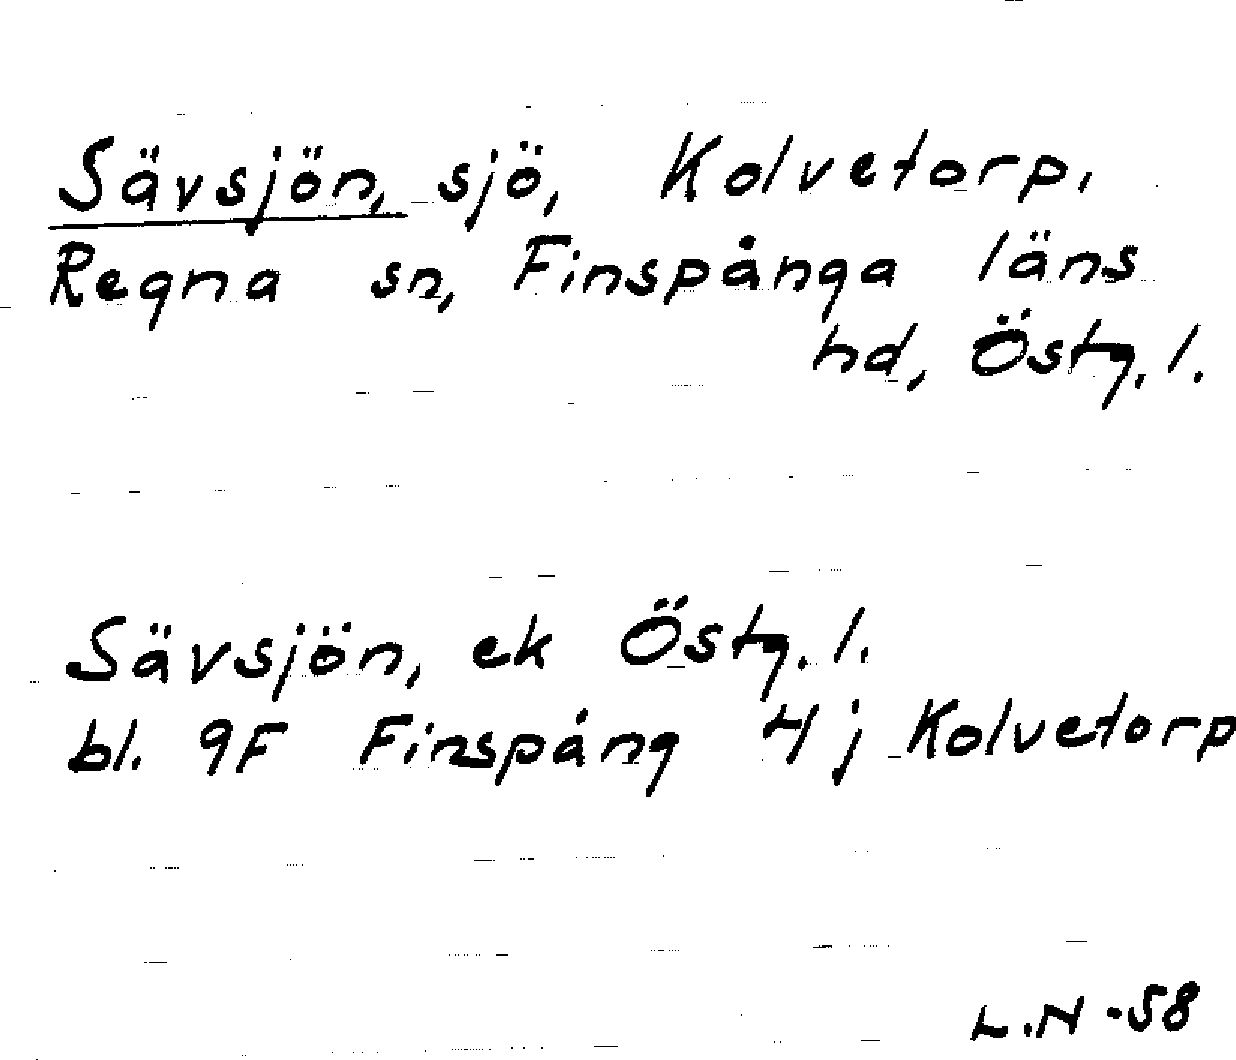 Sävsjön, sjö, Kolvetorp,
Regna sn, Finspånga läns
hd, Östg. l.
Sävsjön, ek Östg. l.
bl. 9F Finspång 4 j Kolvetorp
L.N -58